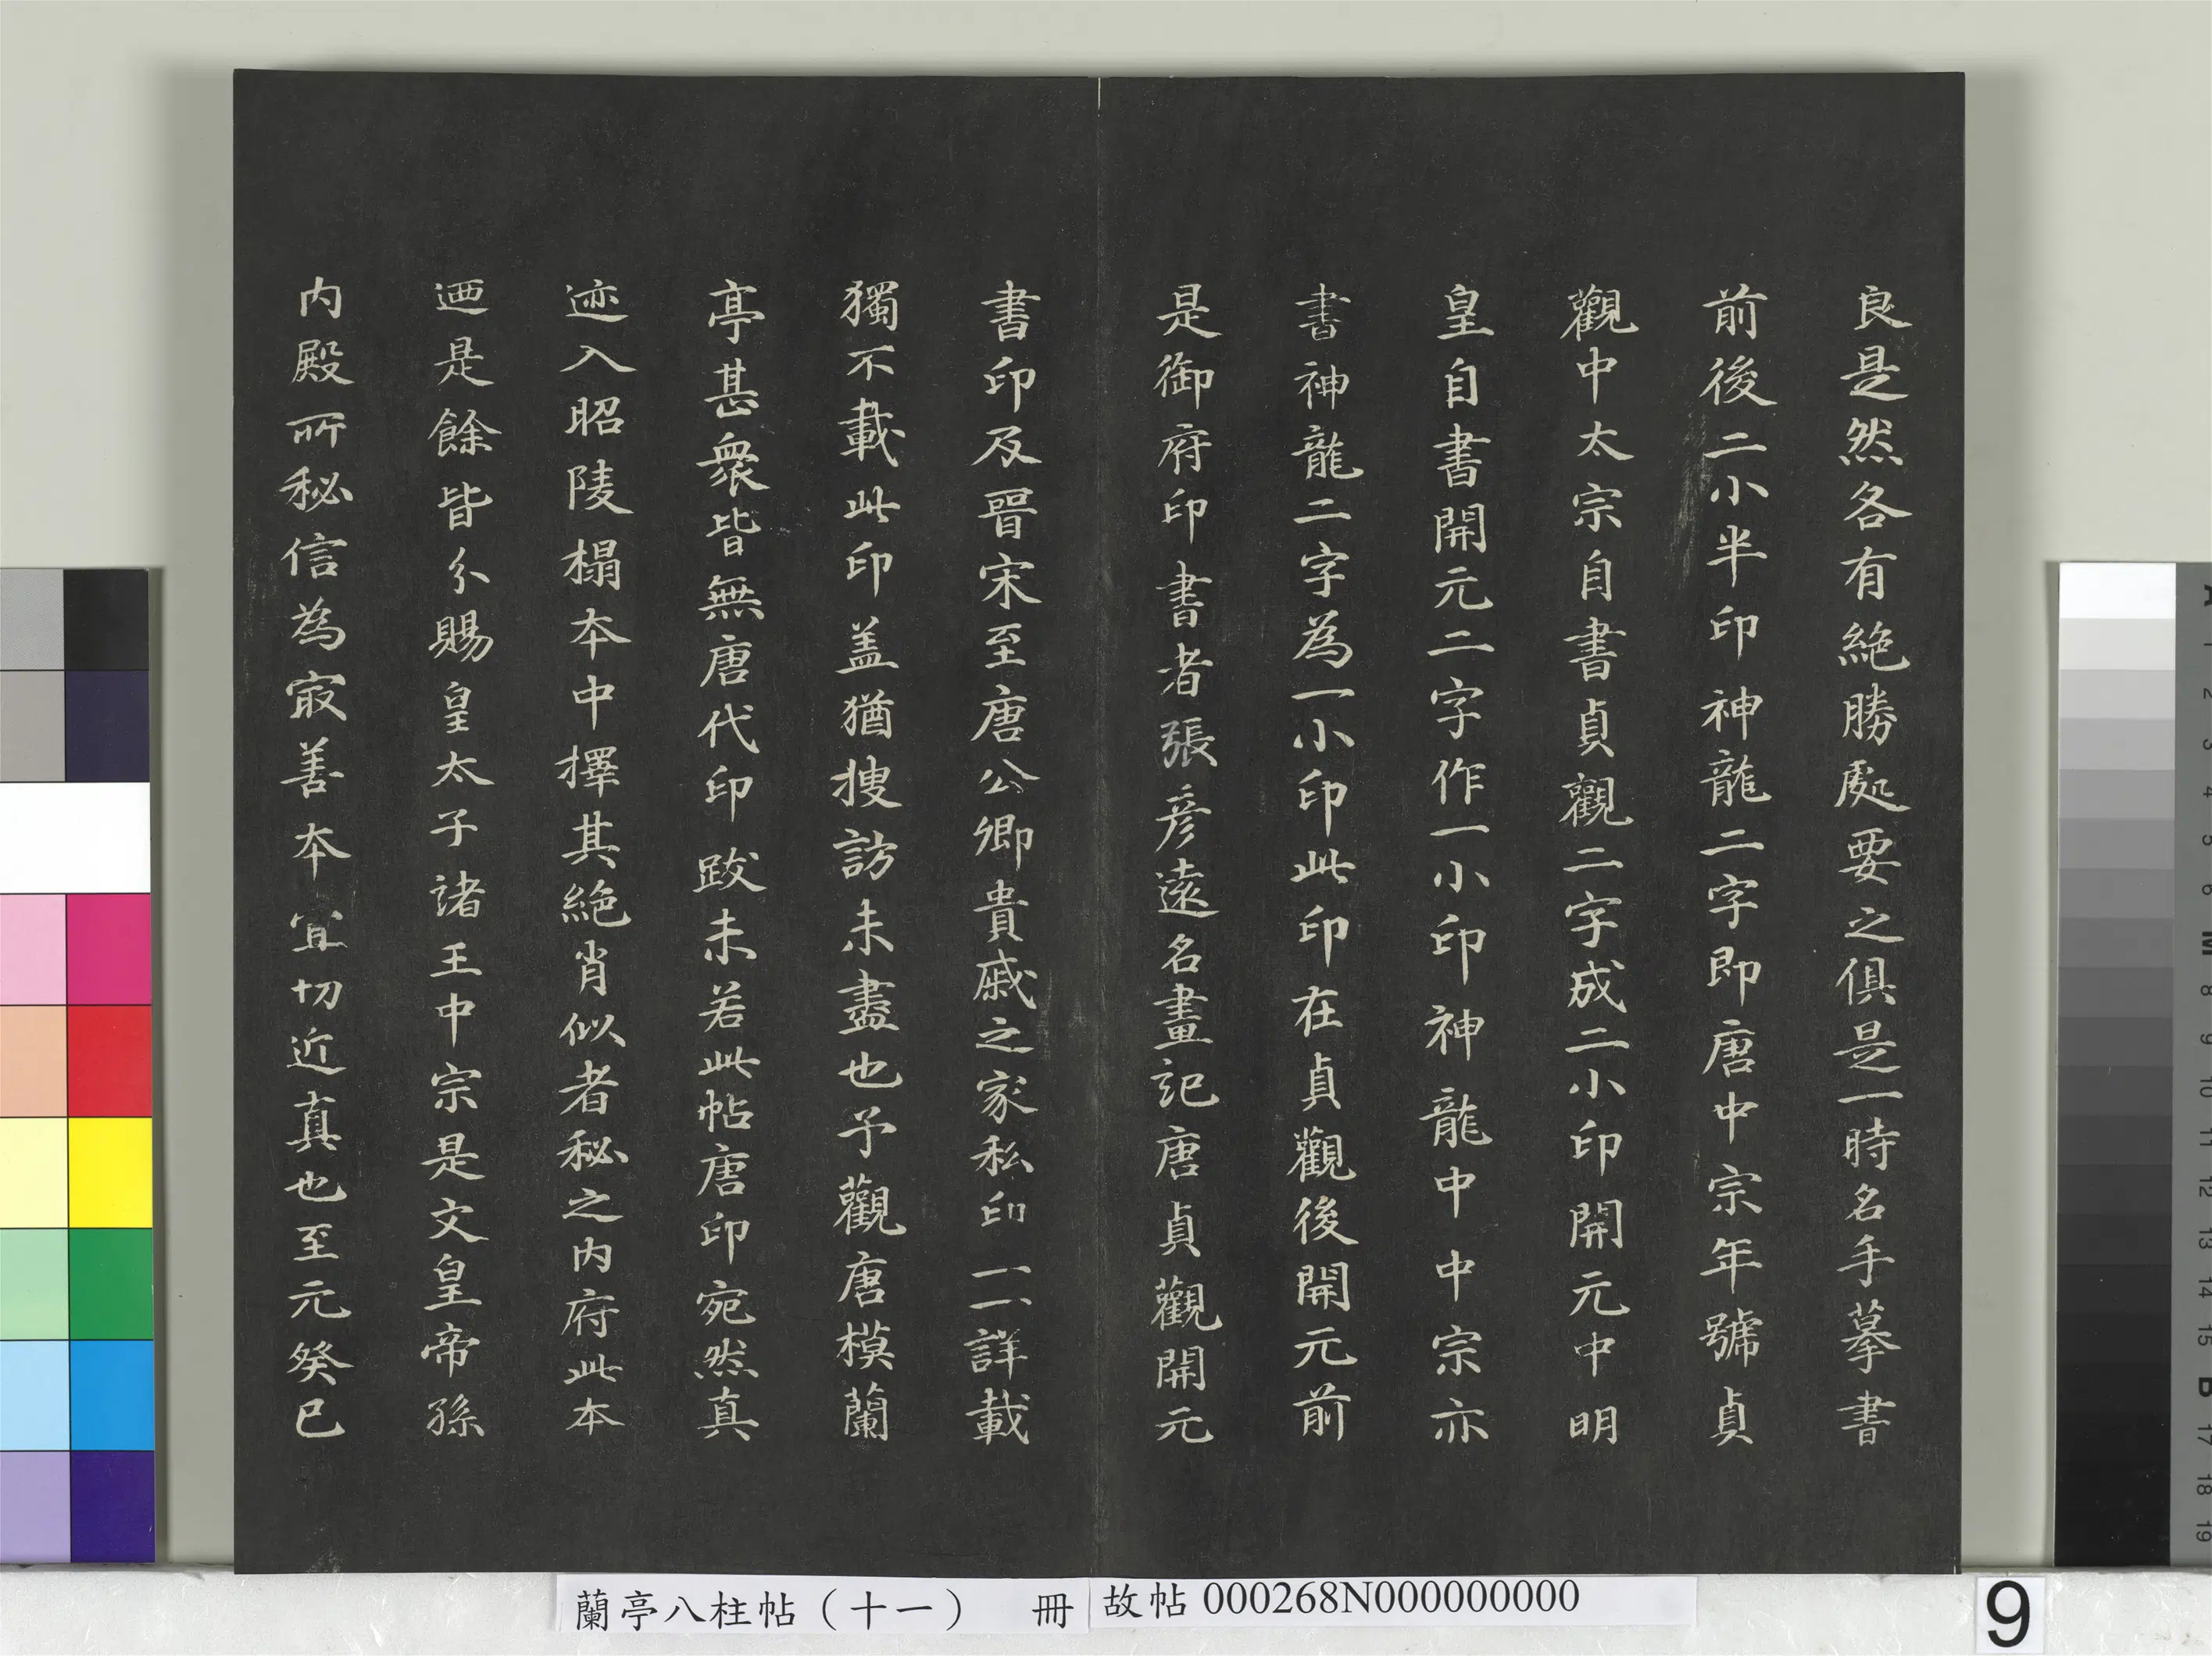 良是然各有絶勝處要之俱是一時名手摹書
前後二小半印神龍二字即唐中宗年號貞
觀中太宗自書貞觀二字成二小印開元中明
皇自書開元二字作一小印神龍中中宗亦
書神龍二字為一小印此印在貞觀後開元前
是御府印書者張彦遠名畫記唐貞觀開元
書印及晉宋至唐公卿貴戚之家私印一一詳載
獨不載此印盖猶搜訪未盡也予觀唐模蘭
亭甚衆皆無唐代印跋未若此帖唐印宛然真
迹入昭陵榻本中擇其絶肖似者秘之内府此本
迺是餘皆分賜皇太子諸王中宗是文皇帝孫
内殿所秘信為㝡善本宜切近真也至元癸巳
蘭亭八柱帖（十一） 冊
故帖 000268N000000000
9
A 1 2 3 4 5 6 M 8 9 10 11 12 13 14 15 B 17 18 19